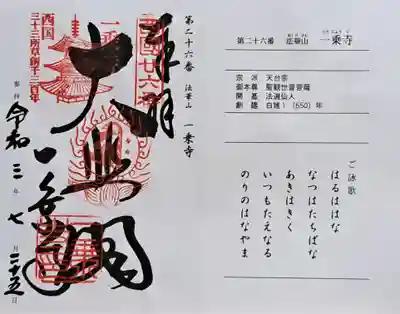 第二十六番 法華山 一乗寺
宗 派 天台宗
御本尊 聖観世音菩薩
開 基 法道仙人
創 建 白雉1(650)年
ご詠歌
はるははな
なつはたちばな
あきはきく
いつもたえなる
のりのはなやま
第二十六番 法華山 一乗寺
奉拝
西国廿六番
大悲閣
一乗寺
西国
三十三所草創千三百年
令和三年七月二十五日